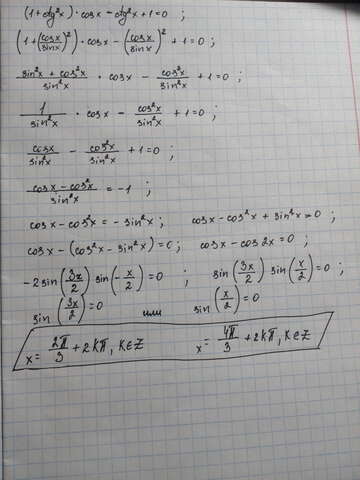 (1+ctg²x)·cosx - ctg²x+1=0 ;
(1+(cosx/sinx)²)·cosx - (cosx/sinx)² +1=0 ;
(sin²x+cos²x)/sin²x · cosx - cos²x/sin²x +1=0 ;
1/sin²x · cosx - cos²x/sin²x +1=0 ;
cosx/sin²x - cos²x/sin²x +1=0 ;
(cosx-cos²x)/sin²x = -1 ;
cosx-cos²x = -sin²x ; cosx-cos²x+sin²x=0 ;
cosx-(cos²x-sin²x)=0 ; cosx-cos2x=0 ;
-2sin(3x/2)sin(-x/2)=0 ; sin(3x/2)sin(x/2)=0 ;
sin(3x/2)=0 или sin(x/2)=0
x= 2π/3 +2kπ, k∈Z x= 4π/3 +2kπ, k∈Z